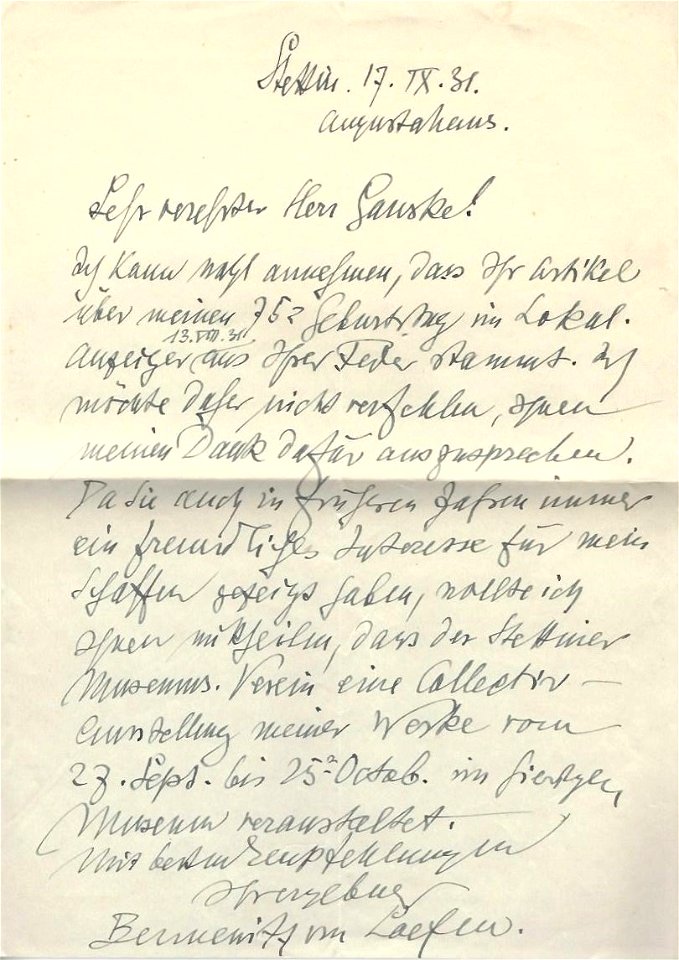 Stettin. 17. IX. 31.
Augustahaus.
Sehr verehrter Herr Ganske!
Ich kann wohl annehmen, dass Ihr Artikel
über meinen 75 Geburtstag im Lokal.
13. VIII. 31
Anzeiger aus Ihrer Feder stammt. Ich
möchte daher nicht verfehlen, Ihnen
meinen Dank dafür auszusprechen.
Da Sie auch in früheren Jahren immer
ein freundliches Interesse für mein
Schaffen gezeigt haben, wollte ich
Ihnen mittheilen, dass der Stettiner
Museums-Verein eine Collectiv-
Ausstellung meiner Werke vom
27. Sept. bis 25 Octob. im hiesigen
Museum veranstaltet.
Mit besten Empfehlungen
Ihr ergebener
Bennewitz von Loefen.